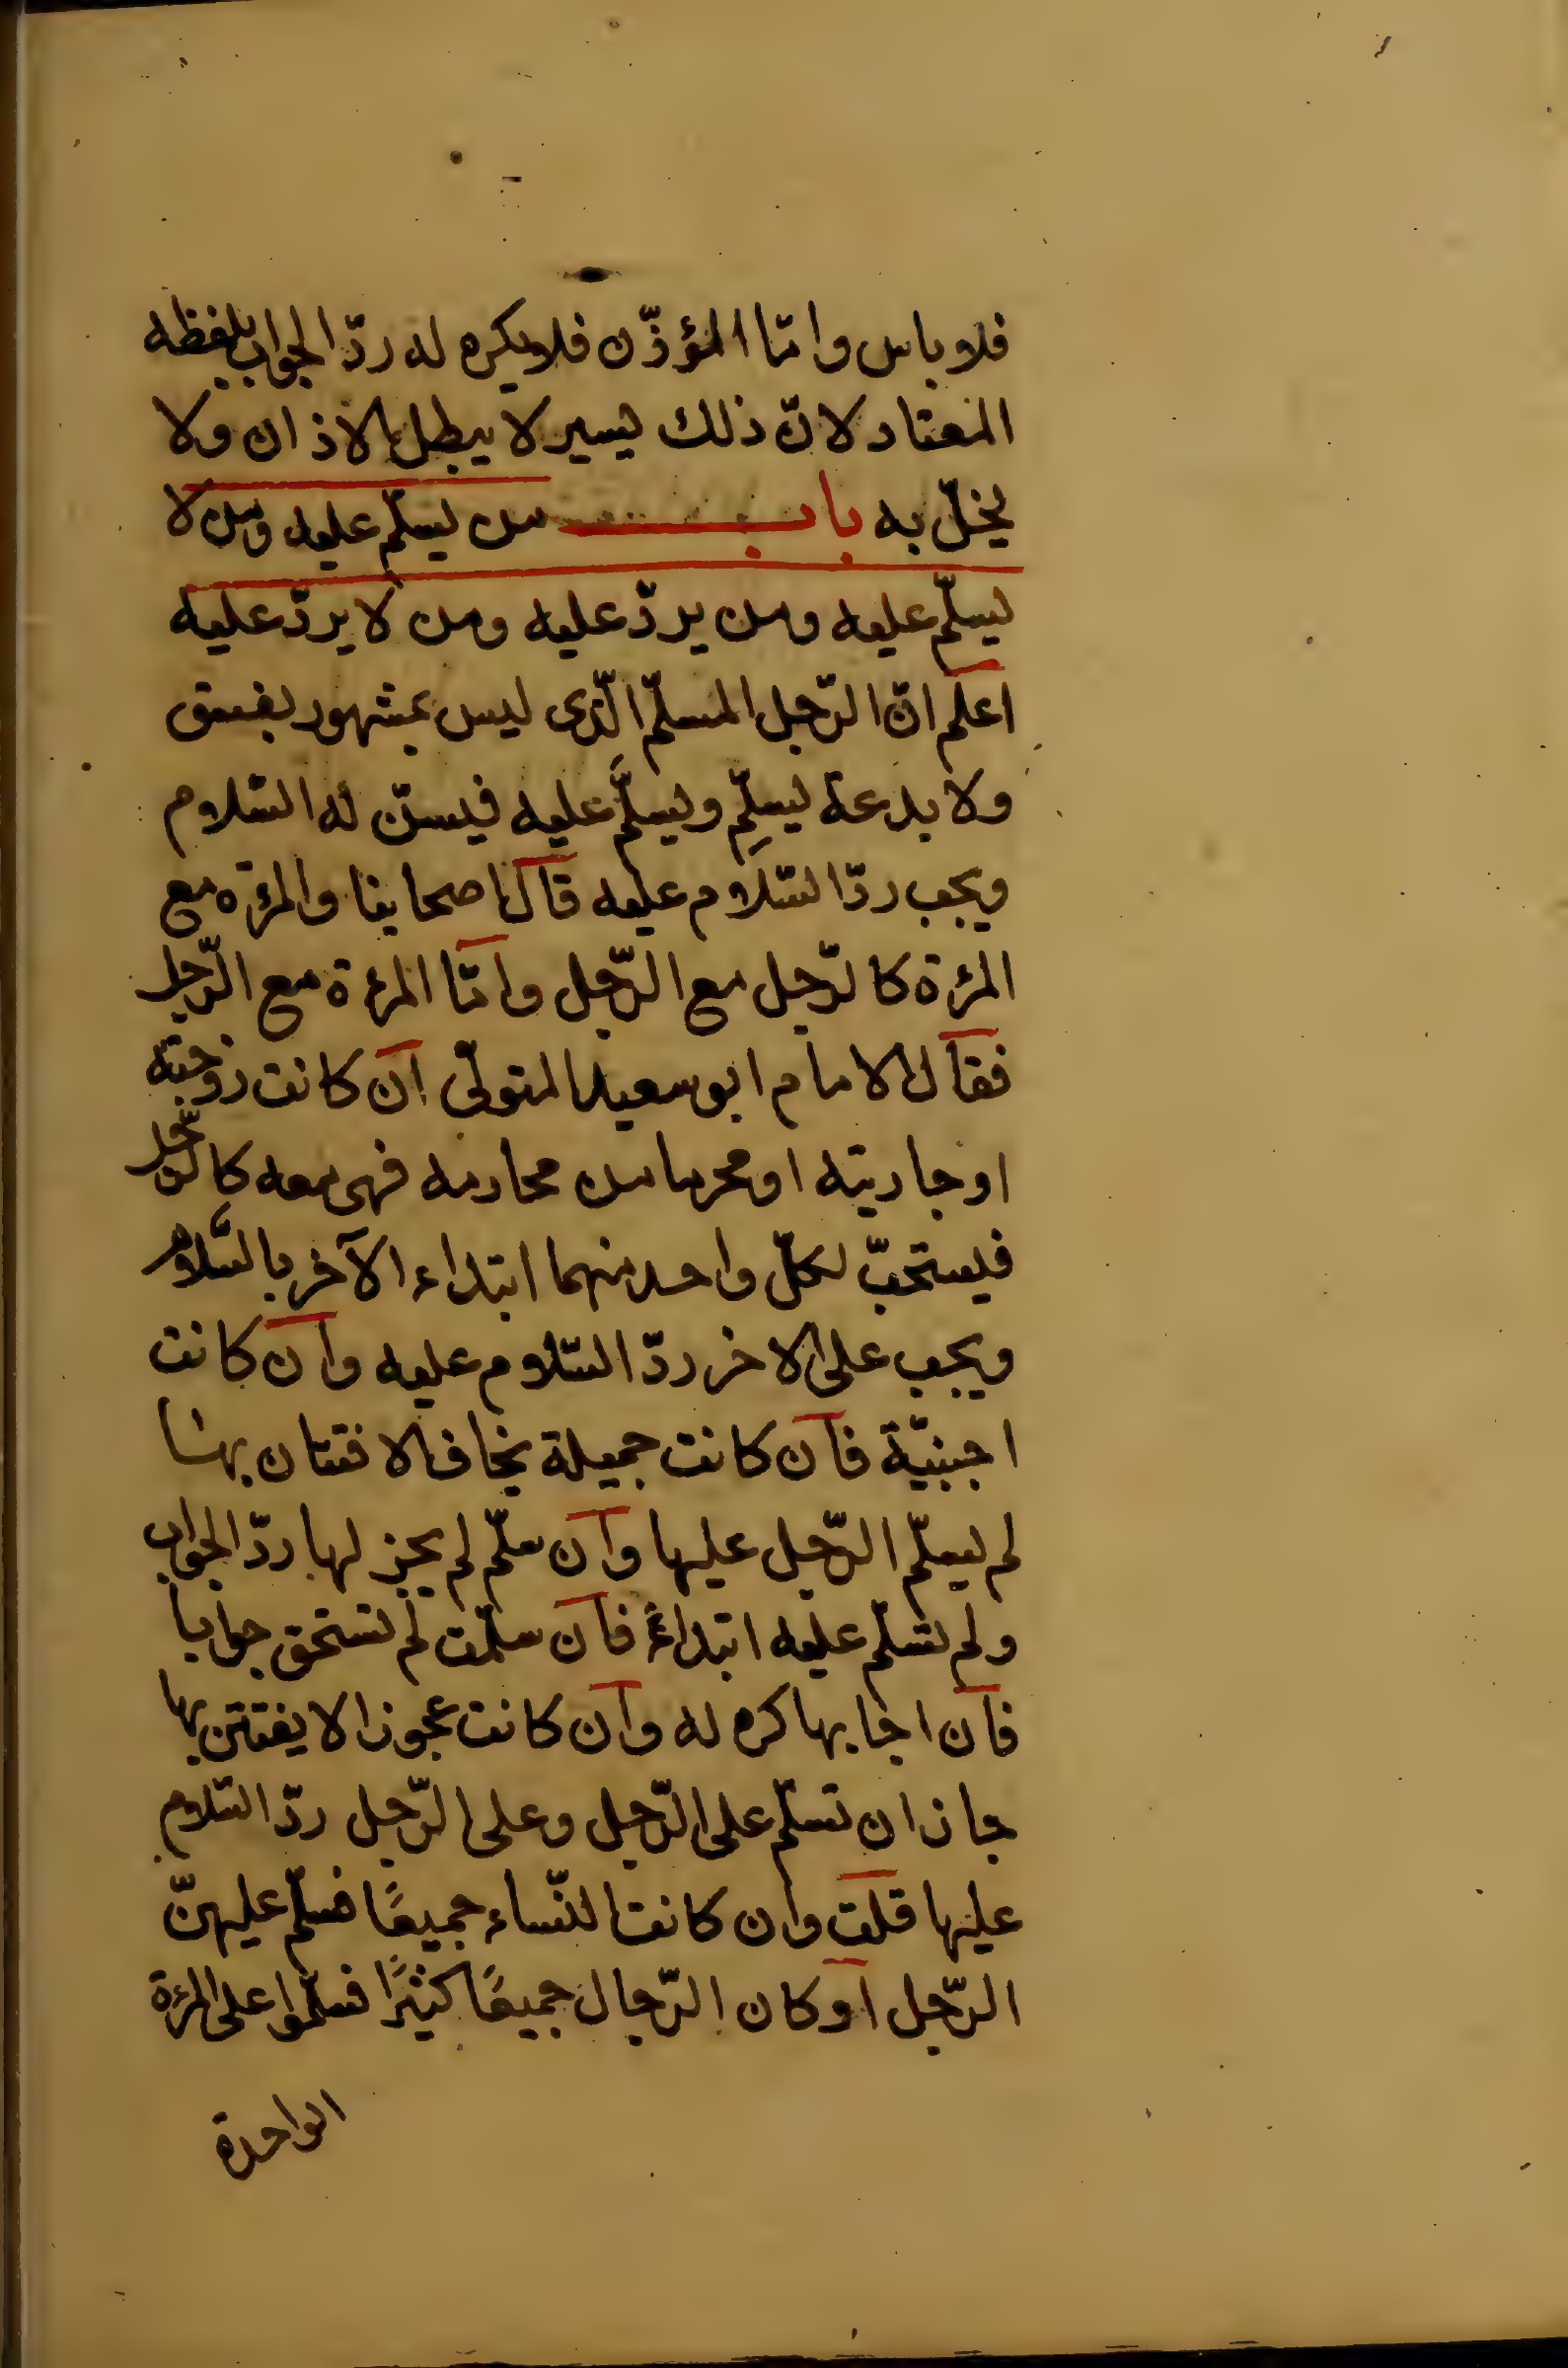 فلا باس وامّا المؤذّن فلا يكره له ردّ الجواب بلفظه
المعتاد لانّ ذلك يسير لا يبطل الاذان ولا
يخلّ به باب من يسلّم عليه ومن لا
يسلّم عليه ومن يردّ عليه ومن لا يردّ عليه
اعلم انّ الرّجل المسلّم الّذى ليس بمشهور بفسق
ولا بدعة يسلِّم ويسلَّم عليه فيسنّ له السّلام
ويجب ردّ السّلام عليه قال اصحابنا والمرءة مع
المرءة كالرّجل مع الرّجل وامّا المرءة مع الرّجل
فقال الامام ابو سعيد المتولّى ان كانت زوجته
او جاريته او محرما من محارمه فهى معه كالرّجل
فيستحبّ لكلّ واحد منهما ابتداء الآخر بالسّلام
ويجب على الاخر ردّ السّلام عليه وان كانت
اجنبيّة فان كانت جميلة يخاف الافتتان بها
لم يسلّم الرّجل عليها وان سلّم لم يجز لها ردّ الجواب
ولم تسلّم عليه ابتداءً فان سلّمت لم تستحق جوابا
فان اجابها كره له وان كانت عجوزا لا يفتتن بها
جاز ان تسلّم على الرّجل وعلى الرّجل ردّ السّلام
عليها قلت وان كانت النّساء جميعًا فسلّم عليهنّ
الرّجل او كان الرّجال جميعًا كثيرًا فسلّموا على المرءة
الواحدة